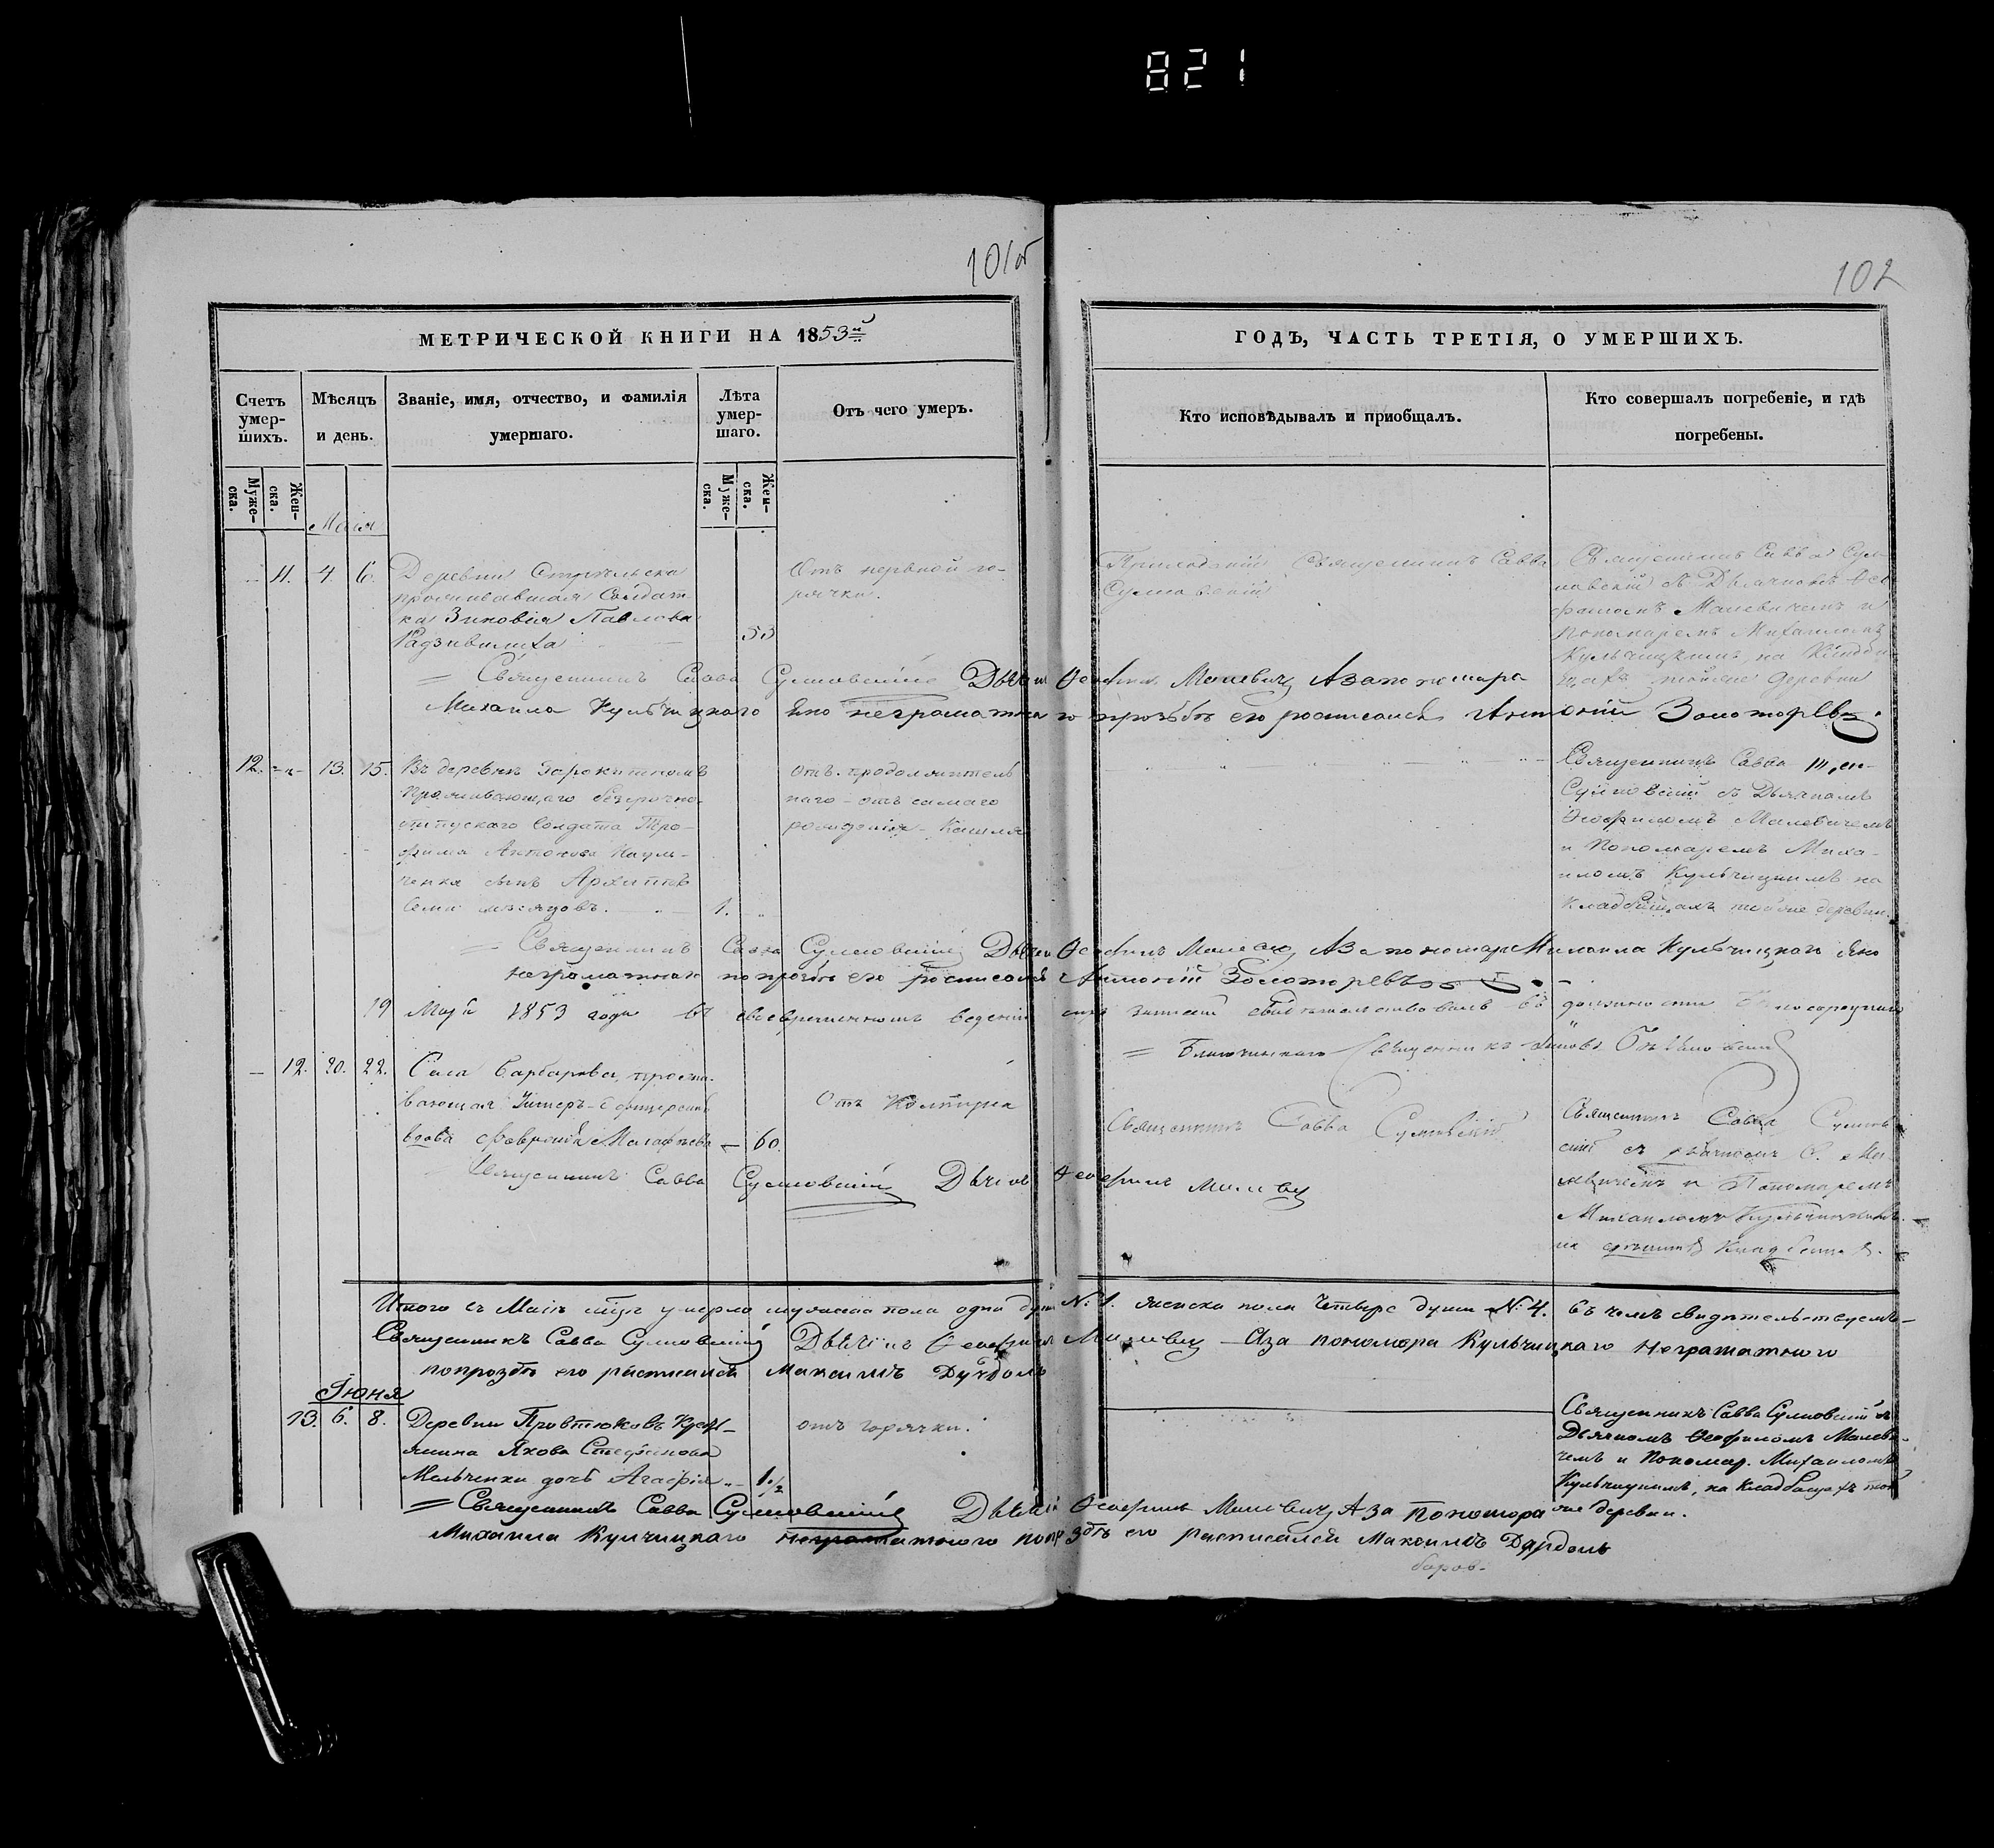 821
101об
102
МЕТРИЧЕСКОЙ КНИГИ НА 1853й
ГОДЪ, ЧАСТЬ ТРЕТІЯ, О УМЕРШИХЪ.
Счетъ умер- шихъ.
Мѣсяцъ и день.
Званіе, имя, отчество, и фамилія умершаго.
Лѣта умер- шаго.
Отъ чего умеръ.
Кто исповѣдывалъ и пріобщалъ.
Кто совершалъ погребеніе, и гдѣ погребены.
Муже- ска.
Жен- ска.
Муже- ска.
Жен- ска.
Маія
11. 4. 6.
Деревни
проживавшая Солдат-
ка Зиновія Павлова
Радзивилиха
53
Отъ нервной го-
рячки.
Приходскій Священникъ Савва
Сулковскій
Священникъ Савва Сул-
ковскій съ Дьячкомъ Ѳео-
филомъ Малевичемъ и
Пономаремъ Михаиломъ
Кульчицкимъ, на Кладби-
щахъ тойже деревни
= Священникъ Савва Сулковскій Дьячекъ Ѳеофилъ Малевичъ А за пономара
Михаила Кульчицкаго неграматнаго по прозьбѣ его росписался Антоній Золоторевъ
12. 13. 15.
Въ деревнѣ
проживающаго безсрочно-
отпускаго Солдата Тро-
фима Антонова
сынъ Архиппъ
семи мѣсяцовъ.
1.
отъ продолжитель
наго отъ самаго
рожденія Кашля
Священникъ Савва
Сулковскій съ Дьячкомъ
Ѳеофиломъ Малевичемъ
и Пономаремъ Миха-
иломъ Кульчицкимъ на
Кладбищахъ тойже деревни.
= Священникъ Савва Сулковскій Дьячекъ Ѳеофилъ Малевичъ А за пономара Михаила Кульчицкаго
неграматнаго по прозбѣ его росписался Антоній Золоторевъ
19 Маія 1853 года въ своевременномъ веденіи сихъ записей свидѣтельствовалъ въ должности
= Благочиннаго Священникъ
12. 20. 22.
Села Варваровки, прожи-
вающая Унтеръ-Офицерская
вдова Февронія
60.
Отъ
Священникъ Савва Сулковскій
Священникъ Савва Сулков-
скій съ дьячкомъ Ѳ. Ма-
левичемъ и Пономаремъ
Михаиломъ Кульчицкимъ
на Кладбищѣ.
Священникъ Савва Сулковскій Дьячекъ Ѳеофилъ Малевичъ
Итого въ Маіѣ мѣсяцѣ умерло мужеска пола одна душа №1. женска пола четыре души №4. въ чемъ свидѣтельствуемъ
Священникъ Савва Сулковскій Дьячекъ Ѳеофилъ Малевичъ А за пономара Кульчицкаго неграматного
попрозбѣ его расписался Максимъ
Іюня
13. 6. 8.
Деревни Кресть-
янина Якова Стефанова
Мельченки дочь Агафія
1 1/2
отъ горячки.
Священникъ Савва Сулковскій съ
Дьячкомъ Ѳеофиломъ Малеви-
чемъ и Пономар. Михаиломъ
Кульчицкимъ, на Кладбищахъ той
же деревни.
= Священникъ Савва Сулковскій Дьячекъ Ѳеофилъ Малевичъ А за Пономора
Михаила Кулчицкаго неграматного попрозбѣ его расписался Максимъ